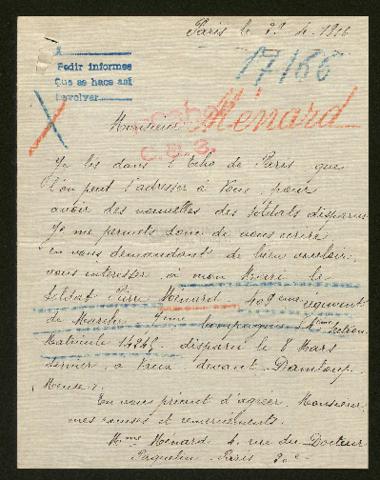 Paris le 4. 1916
A
Pedir informes
Que se haga así
Devolver
17166
Ménard
Monsieur
Je lis dans l'Echo de Paris que
l'on peut s'adresser à Vous pour
avoir des nouvelles des Soldats disparus
Je me permets donc de vous écrire
en vous demandant de bien vouloir
vous interesser à mon Mari le
Soldat Pierre Ménard 409 eme régiment
de Marche, compagnie section
Matricule disparu le 8 Mars
dernier à Vaux devant Damloup
Meuse.
En vous priant d'agréer, Monsieur,
mes excuses et remerciements.
Mme Menard 4. rue du Docteur
Paquelin Paris 20e